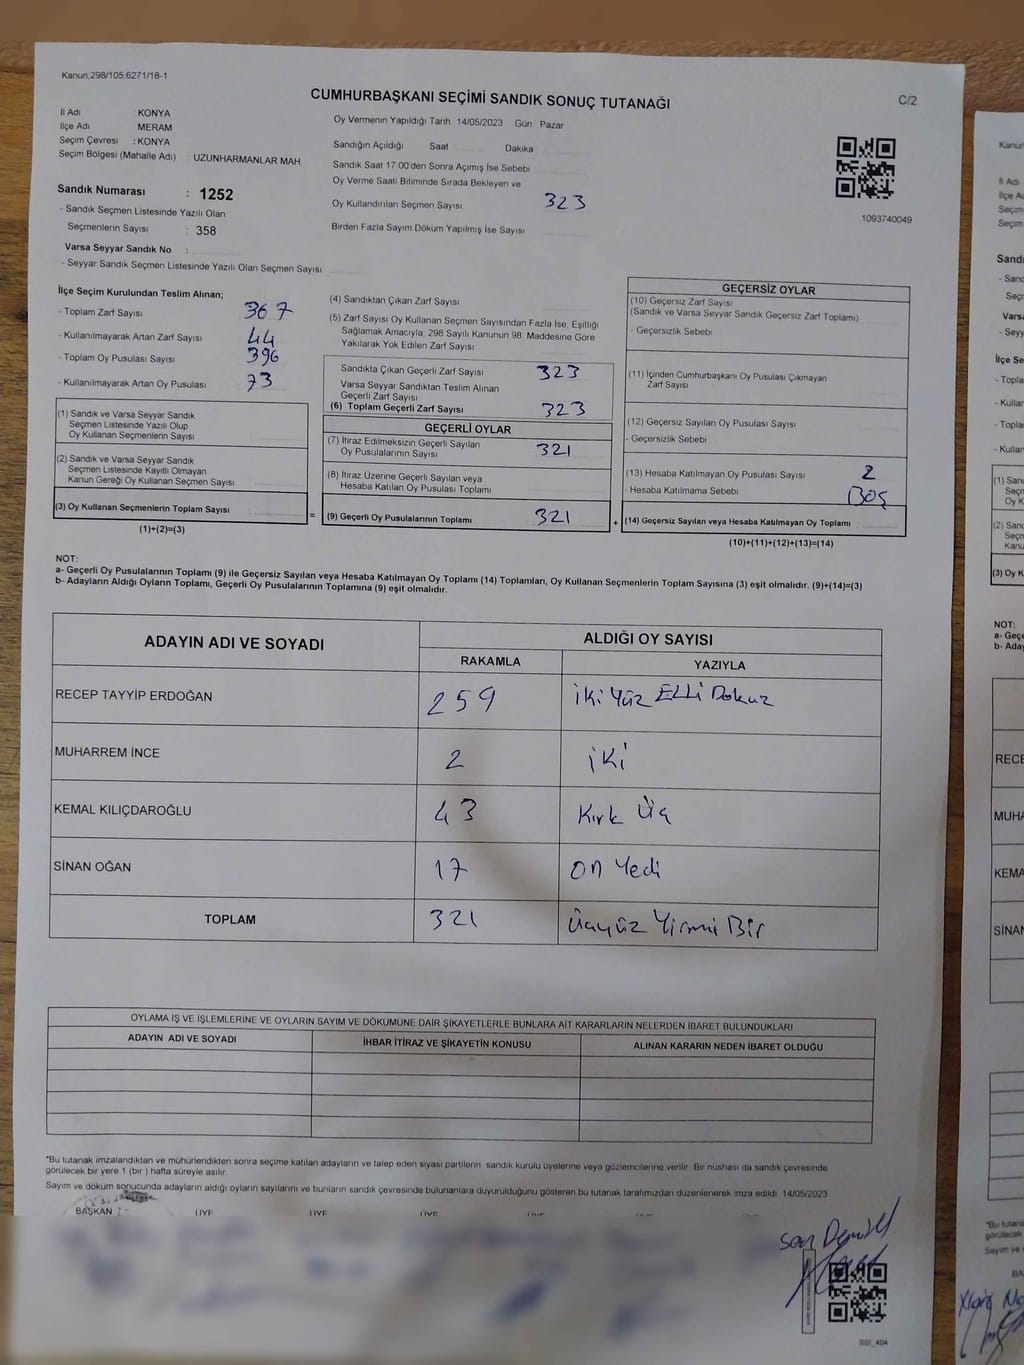 Kanun:298/105.6271/18-1
CUMHURBAŞKANI SEÇİMİ SANDIK SONUÇ TUTANAĞI
C/2
İl Adı : KONYA
İlçe Adı : MERAM
Seçim Çevresi : KONYA
Seçim Bölgesi (Mahalle Adı) : UZUNHARMANLAR MAH.
Sandık Numarası : 1252
- Sandık Seçmen Listesinde Yazılı Olan
Seçmenlerin Sayısı : 358
Varsa Seyyar Sandık No :
- Seyyar Sandık Seçmen Listesinde Yazılı Olan Seçmen Sayısı
Oy Vermenin Yapıldığı Tarih 14/05/2023 Gün Pazar
Sandığın Açıldığı Saat Dakika
Sandık Saat 17:00'den Sonra Açımış İse Sebebi
Oy Verme Saati Bitiminde Sırada Bekleyen ve
Oy Kullandırılan Seçmen Sayısı 323
Birden Fazla Sayım Döküm Yapılmış İse Sayısı
1093740049
İlçe Seçim Kurulundan Teslim Alınan;
- Toplam Zarf Sayısı 367
- Kullanılmayarak Artan Zarf Sayısı 44
- Toplam Oy Pusulası Sayısı 396
- Kullanılmayarak Artan Oy Pusulası 73
(1) Sandık ve Varsa Seyyar Sandık
Seçmen Listesinde Yazılı Olup
Oy Kullanan Seçmenlerin Sayısı
(2) Sandık ve Varsa Seyyar Sandık
Seçmen Listesinde Kayıtlı Olmayan
Kanun Gereği Oy Kullanan Seçmen Sayısı
(3) Oy Kullanan Seçmenlerin Toplam Sayısı
(1)+(2)=(3)
(4) Sandıktan Çıkan Zarf Sayısı
(5) Zarf Sayısı Oy Kullanan Seçmen Sayısından Fazla İse, Eşitliği
Sağlamak Amacıyla, 298 Sayılı Kanunun 98. Maddesine Göre
Yakılarak Yok Edilen Zarf Sayısı
Sandıkta Çıkan Geçerli Zarf Sayısı 323
Varsa Seyyar Sandıktan Teslim Alınan
Geçerli Zarf Sayısı
(6) Toplam Geçerli Zarf Sayısı 323
GEÇERLİ OYLAR
(7) İtiraz Edilmeksizin Geçerli Sayılan
Oy Pusulalarının Sayısı 321
(8) İtiraz Üzerine Geçerli Sayılan veya
Hesaba Katılan Oy Pusulası Toplamı
= (9) Geçerli Oy Pusulalarının Toplamı 321 +
GEÇERSİZ OYLAR
(10) Geçersiz Zarf Sayısı
(Sandık ve Varsa Seyyar Sandık Geçersiz Zarf Toplamı)
- Geçersizlik Sebebi
(11) İçinden Cumhurbaşkanı Oy Pusulası Çıkmayan
Zarf Sayısı
(12) Geçersiz Sayılan Oy Pusulası Sayısı
- Geçersizlik Sebebi
(13) Hesaba Katılmayan Oy Pusulası Sayısı 2
- Hesaba Katılmama Sebebi Boş
(14) Geçersiz Sayılan veya Hesaba Katılmayan Oy Toplamı
(10)+(11)+(12)+(13)=(14)
NOT:
a- Geçerli Oy Pusulalarının Toplamı (9) ile Geçersiz Sayılan veya Hesaba Katılmayan Oy Toplamı (14) Toplamları, Oy Kullanan Seçmenlerin Toplam Sayısına (3) eşit olmalıdır. (9)+(14)=(3)
b- Adayların Aldığı Oyların Toplamı, Geçerli Oy Pusulalarının Toplamına (9) eşit olmalıdır.
ADAYIN ADI VE SOYADI ALDIĞI OY SAYISI
RAKAMLA YAZIYLA
RECEP TAYYİP ERDOĞAN 259 İki Yüz ELLİ Dokuz
MUHARREM İNCE 2 İKİ
KEMAL KILIÇDAROĞLU 43 Kırk Üç
SİNAN OĞAN 17 On Yedi
TOPLAM 321 Üçyüz Yirmi Bir
OYLAMA İŞ VE İŞLEMLERİNE VE OYLARIN SAYIM VE DÖKÜMÜNE DAİR ŞİKAYETLERLE BUNLARA AİT KARARLARIN NELERDEN İBARET BULUNDUKLARI
ADAYIN ADI VE SOYADI İHBAR İTİRAZ VE ŞİKAYETİN KONUSU ALINAN KARARIN NEDEN İBARET OLDUĞU
*Bu tutanak imzalandıktan ve mühürlendikten sonra seçime katılan adayların ve talep eden siyasi partilerin sandık kurulu üyelerine veya gözlemcilerine verilir. Bir nüshası da sandık çevresinde
görülecek bir yere 1 (bir ) hafta süreyle asılır.
Sayım ve döküm sonucunda adayların aldığı oyların sayılarını ve bunların sandık çevresinde bulunanlara duyurulduğunu gösteren bu tutanak tarafımızdan düzenlenerek imza edildi. 14/05/2023
BAŞKAN ÜYE ÜYE ÜYE